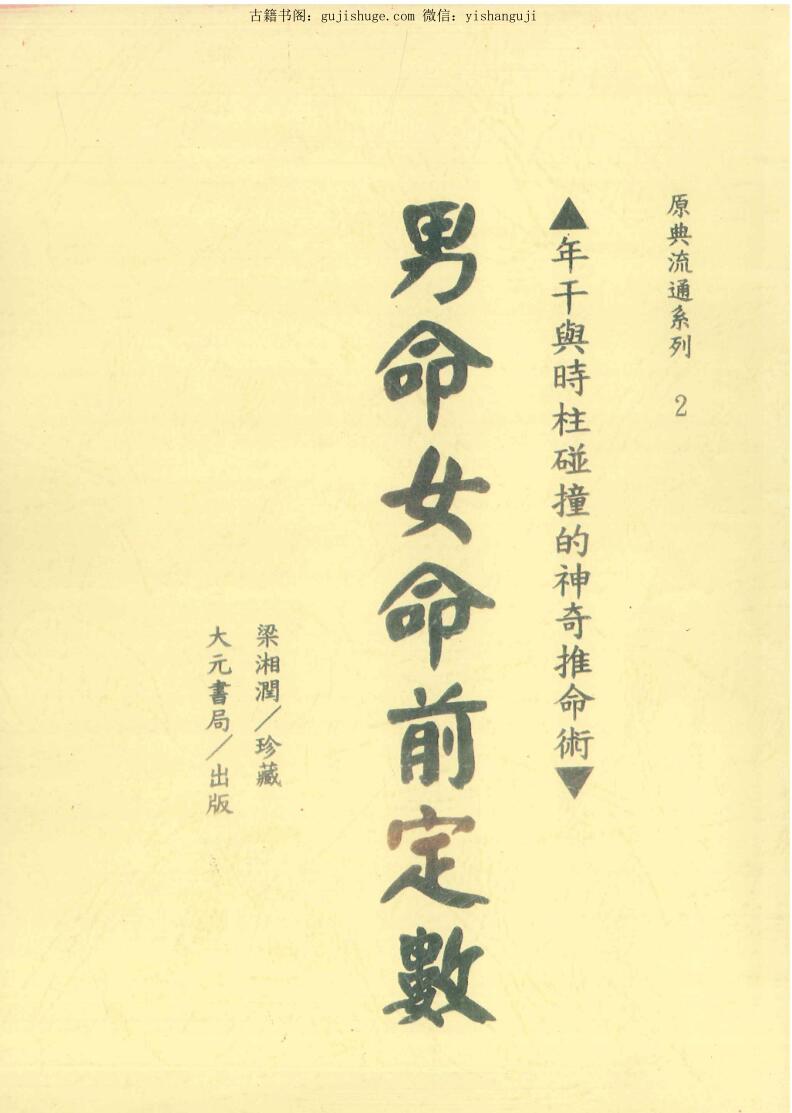 古籍书阁：gujishuge.com 微信：yishanguji
原典流通系列 2
▲年干與時柱碰撞的神奇推命術▼
男命女命前定數
梁湘潤／珍藏
大元書局／出版